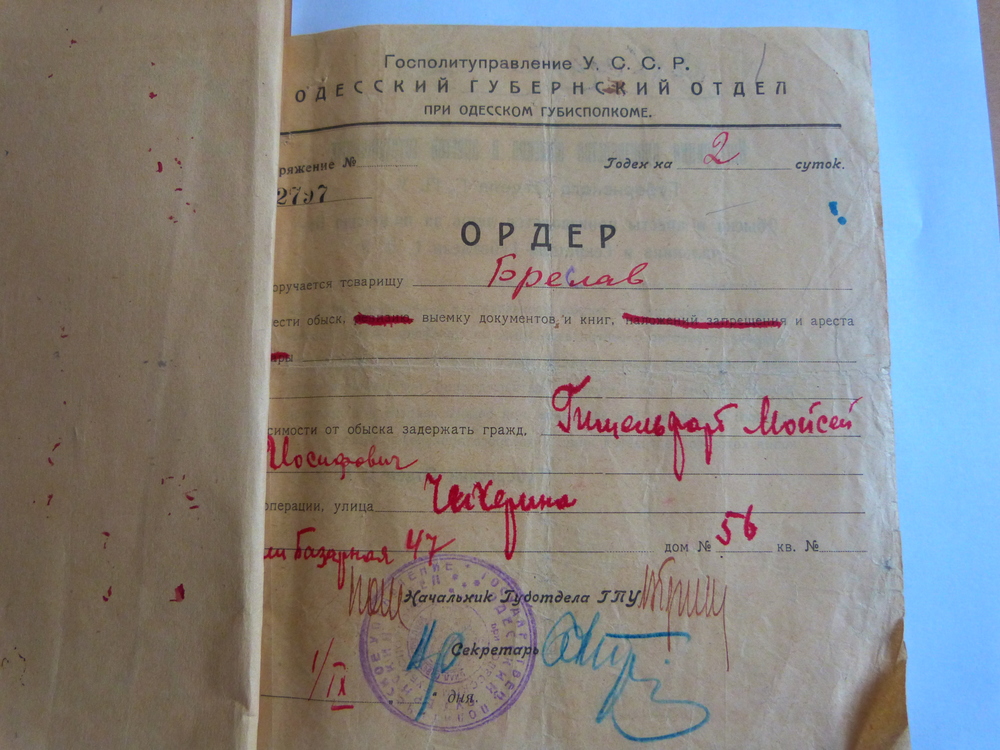 Госполитуправление У. С. С. Р.
ОДЕССКИЙ ГУБЕРНСКИЙ ОТДЕЛ
ПРИ ОДЕССКОМ ГУБИСПОЛКОМЕ.
ряжение № Годен на 2 суток.
2797
ОРДЕР
оручается товарищу Бреслав
ести обыск, выемку документов и книг, наложений запрещения и ареста
симости от обыска задержать гражд. Гительфарт Мойсей
Иосифович
операции, улица Чичерина
или базарная 47 дом № 56 кв. №
Начальник Губотдела ГПУ
Секретарь
1/IX дня.